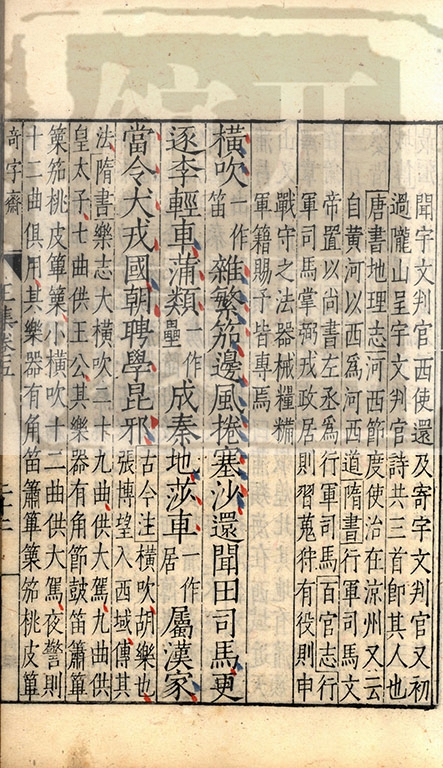 聞宇文判官西使還及寄宇文判官又初
過隴山呈宇文判官詩共三首卽其人也
唐書地理志河西節度使治在涼州又云
自黃河以西爲河西道隋書行軍司馬文
帝置以尚書左丞爲行軍司馬百官志行
軍司馬掌弼戎政居則習蒐狩有役則申
戰守之法器械糧糒
軍籍賜予皆專焉
橫吹一作笛雜繁笳邊風捲塞沙還聞田司馬更
逐李輕車蒲類一作壘成秦地莎車一作居屬漢家
當令犬戎國朝聘學昆邪古今注橫吹胡樂也張博望入西域傳其
法隋書樂志大橫吹二十九曲供大駕九曲供
皇太子七曲供王公其樂器有角節鼓笛簫篳
篥笳桃皮篳篥小橫吹十二曲供大駕夜警則
十二曲俱用其樂器有角笛簫篳篥笳桃皮篳
奇字齋 王集卷五